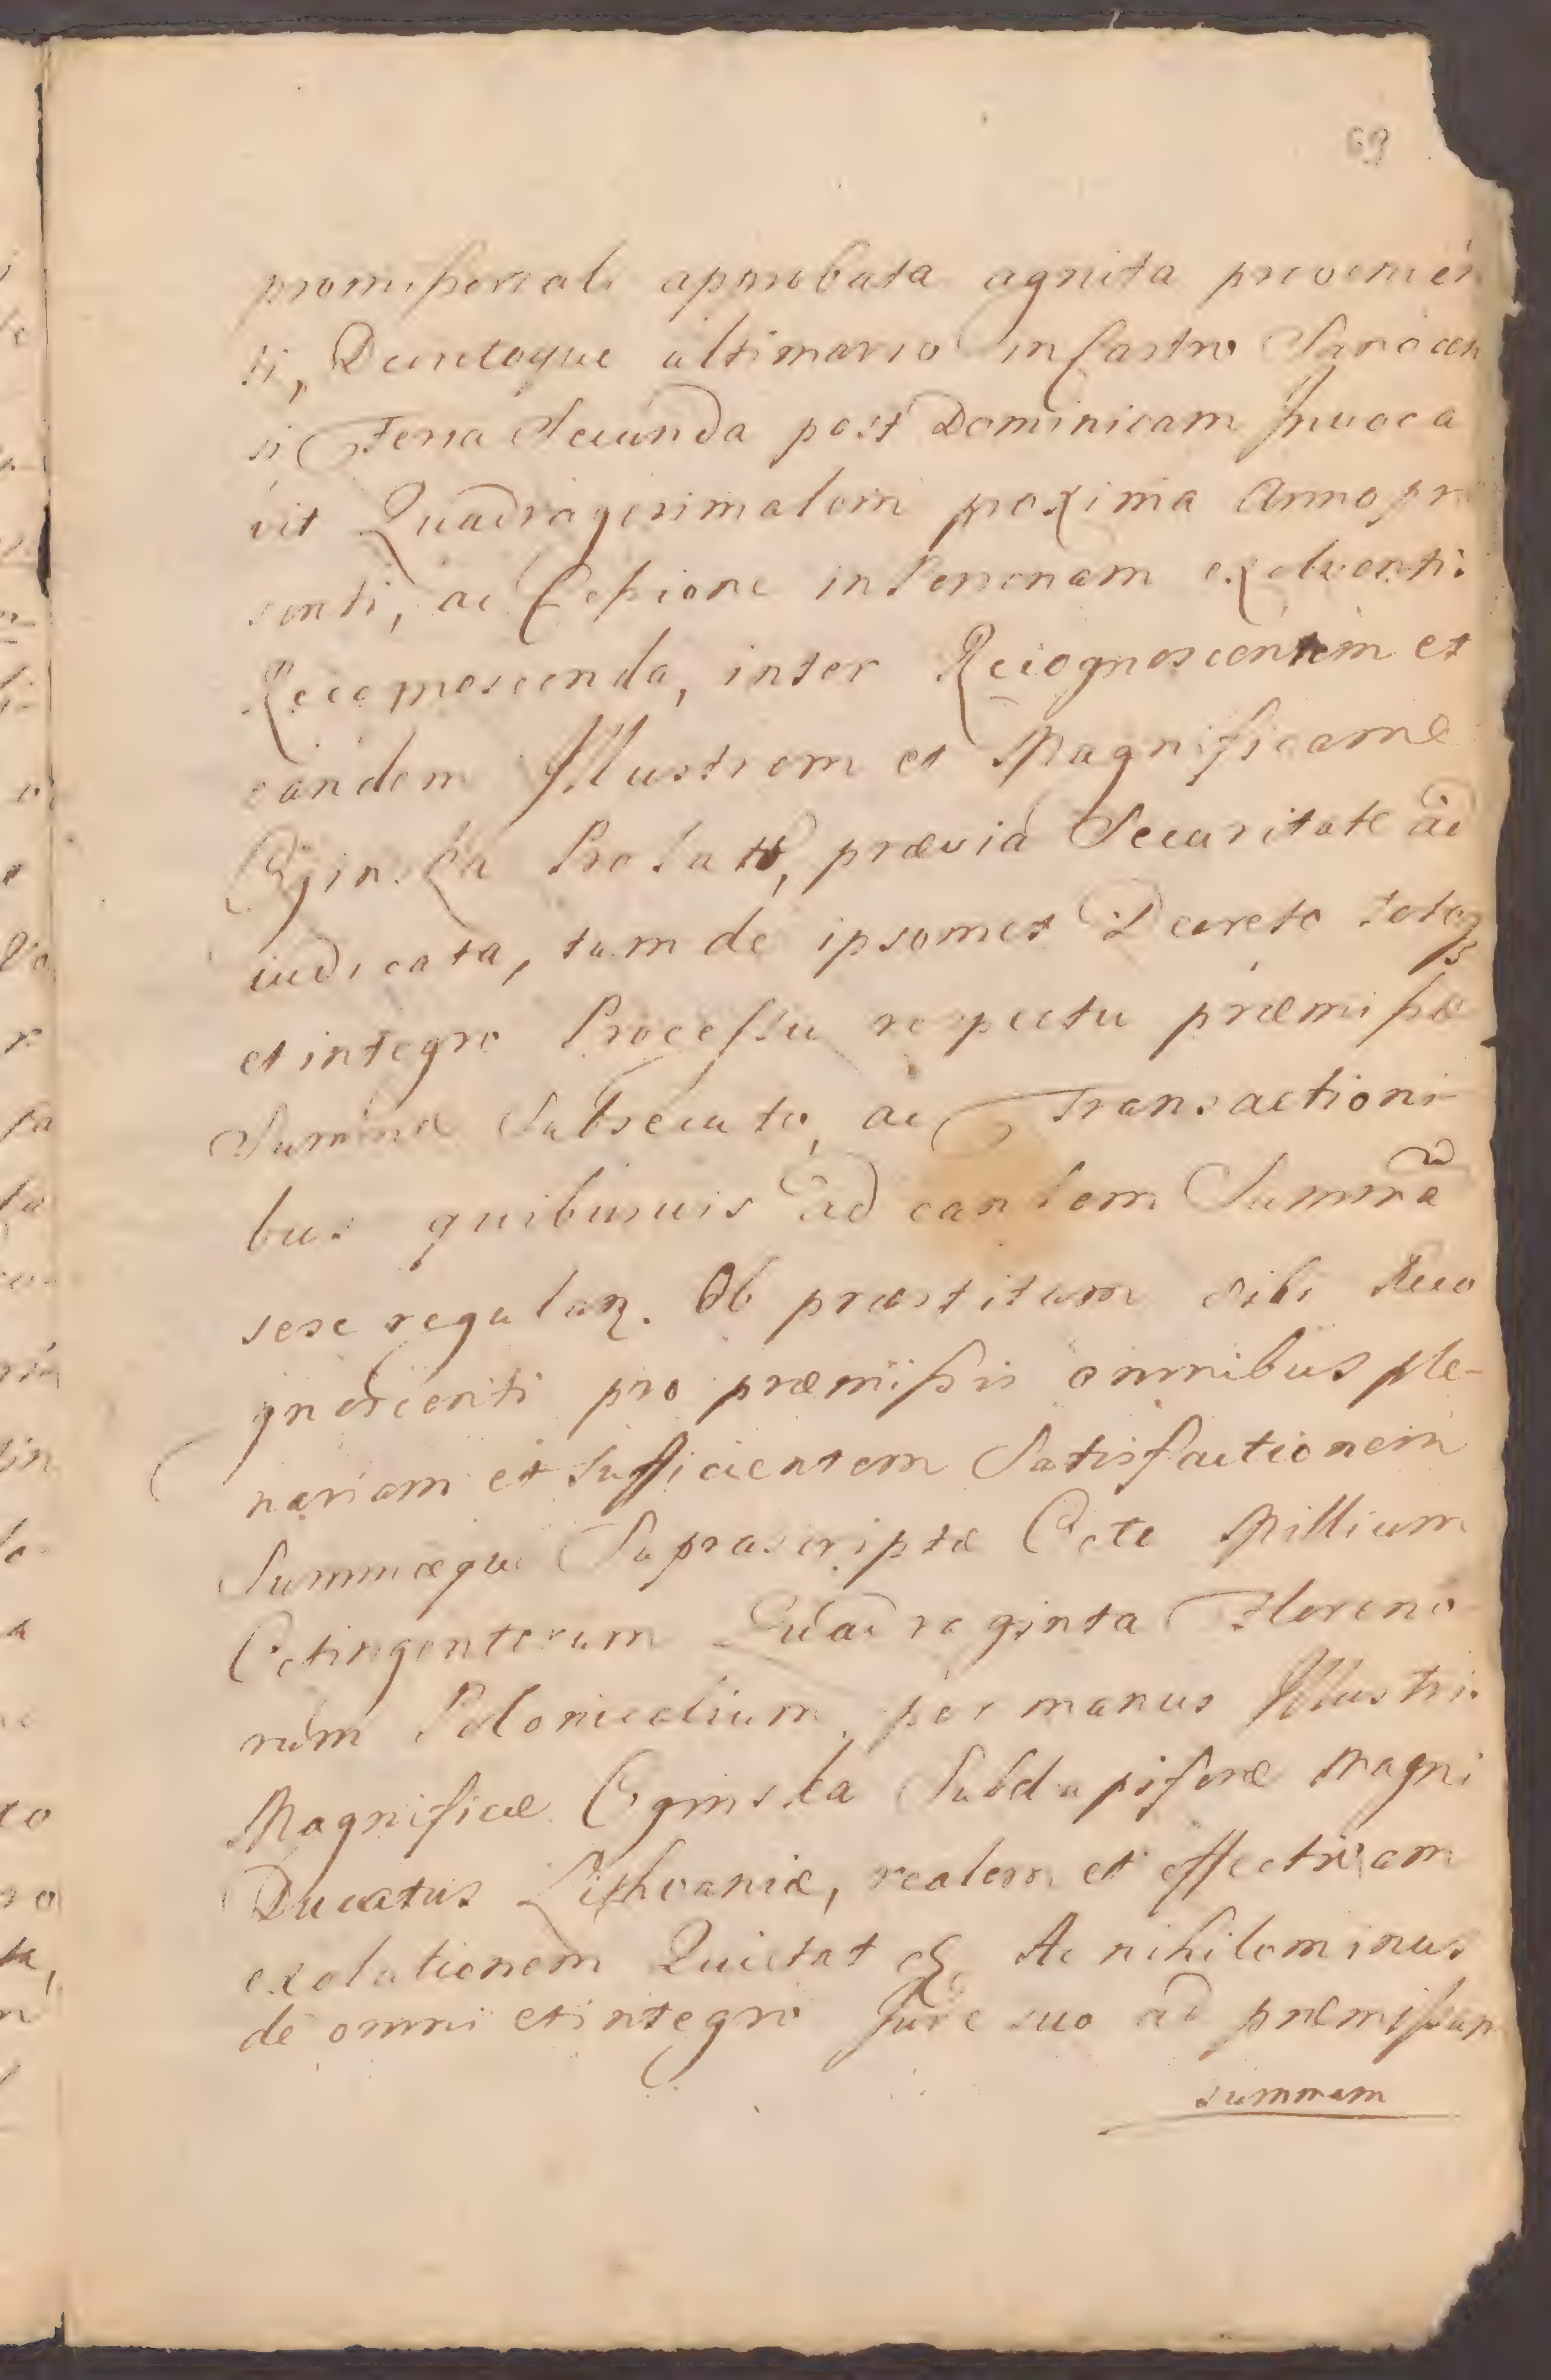 69
promissoriali aprobata agnita provenien
ti, Decretoque ultimario in Castro Sanocen
si Feria Secunda post Dominicam Invoca
vit Quadragesimalem proxima Anno præ
senti, ac Cessione in Personam exolventis
Recognoscenda, inter Recognoscentem et
eandem Illustrem et Magnificam
Oginska Prolato, prævia Securitate ad
iudicata, tum de ipsomet Decreto totoqз
et integro Processu respectu præmissæ
Summæ Subsecuto, ac Transactioni
bus quibusuis ad eandem Summã
sese regulan. Ob præstitam sibi Reco
gnoscenti pro præmissis omnibus ple-
nariam et sufficientem Satisfactionem
Summæque Suprascriptæ Octo Millium
Octingentorum Quadraginta Floreno
rum Polonicalium per manus Illustris
Magnificæ Oginska Subdapiferæ Magni
Ducatus Lithvaniæ, realem et effectivam
exolutionem Quietat
Ac nihilominus
de omni et integro Jure suo ad præmissam
summam